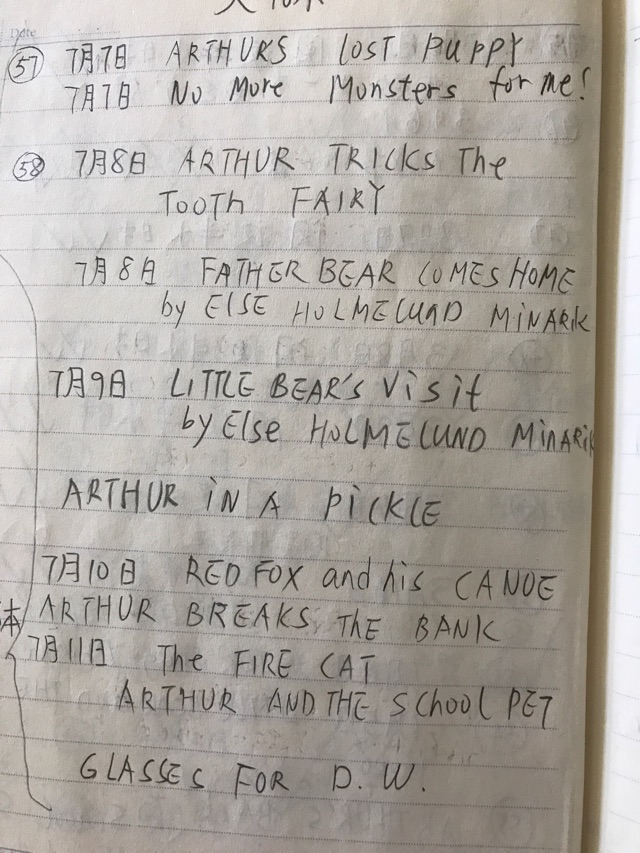 Date
57 7月7日 ARTHURS LOST PUPPY
7月7日 No More Monsters for me!
58 7月8日 ARTHUR TRICKS The
TOOTH FAIRY
7月8日 FATHER BEAR COMES HOME
by ELSE HOLMELUND MINARIK
7月9日 LITTLE BEAR'S Visit
by Else HOLMELUND MINARIK
ARTHUR IN A PICKLE
7月10日 RED FOX and his CANOE
本 ARTHUR BREAKS THE BANK
7月11日 The FIRE CAT
ARTHUR AND THE SCHOOL PET
GLASSES FOR D.W.